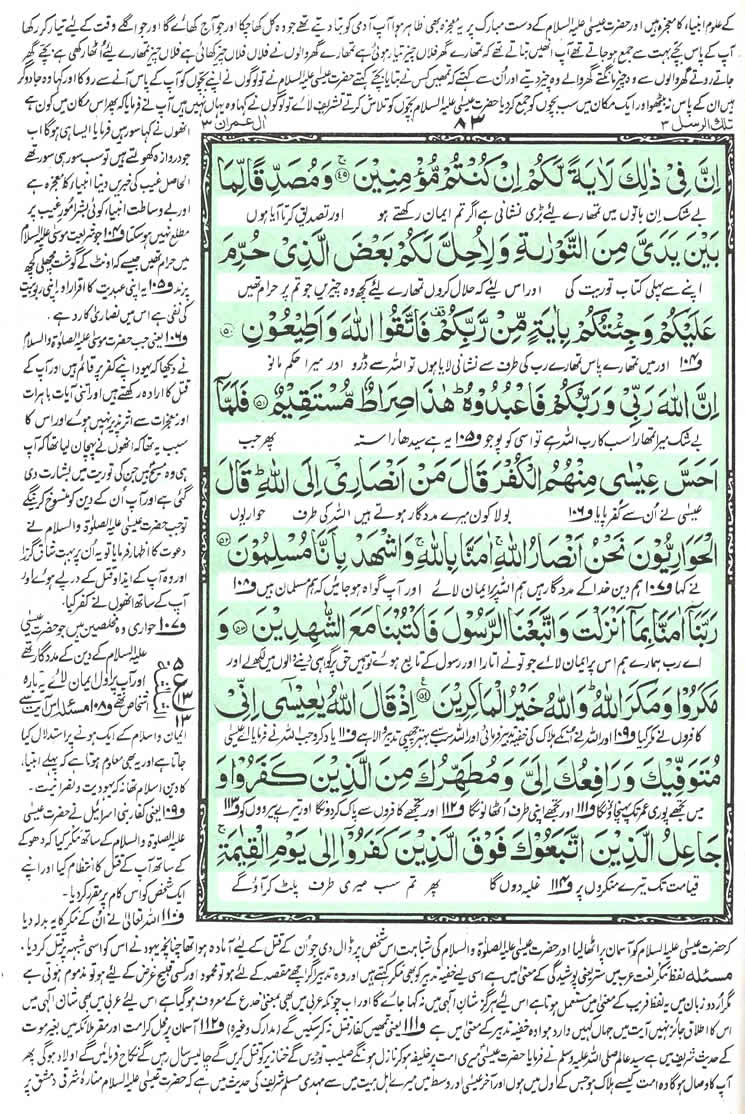 کے علوم انبیاء کا معجزہ ہیں اور حضرت عیسیٰ علیہ السلام کے دست مبارک پر یہ معجزہ بھی ظاہر ہوا آپ آدمی کو بتا دیتے تھے جو وہ کل کھا چکا اور جو آج کھائے گا اور جو اگلے وقت کے لیے تیار کر رکھا
آپ کے پاس بچے بہت سے جمع ہو جاتے تھے آپ انھیں بتاتے تھے کہ تمھارے گھر فلاں چیز تیار ہوئی ہے تمھارے گھر والوں نے فلاں فلاں چیز کھائی ہے فلاں چیز تمہارے لئے اٹھا رکھی ہے بچے گھر
جاتے روتے گھر والوں سے وہ چیز مانگتے گھر والے وہ چیز دیتے اور اُن سے کہتے کہ تمھیں کس نے بتایا بچے کہتے حضرت عیسیٰ علیہ السلام نے تو لوگوں نے اپنے بچوں کو آپ کے پاس آنے سے روکا اور کہا وہ جادوگر
ہیں ان کے پاس نہ بیٹھو اور ایک مکان میں سب بچوں کو جمع کر دیا حضرت عیسیٰ علیہ السلام بچوں کو تلاش کرتے تشریف لائے تو لوگوں نے کہا وہ یہاں نہیں ہیں آپ نے فرمایا کہ پھر اس مکان میں کون ہے
تلك الرسل ۳
۸۳
ال عمرٰن ۳
اِنَّ فِیْ ذٰلِكَ لَاٰیَةً لَّكُمْ اِنْ كُنْتُمْ مُّؤْمِنِیْنَ ۴۹ وَمُصَدِّقًا لِّمَا
بے شک ان باتوں میں تمھارے لئے بڑی نشانی ہے اگر تم ایمان رکھتے ہو اور تصدیق کرتا آیا ہوں
بَیْنَ یَدَیَّ مِنَ التَّوْرٰىةِ وَلِاُحِلَّ لَكُمْ بَعْضَ الَّذِیْ حُرِّمَ
اپنے سے پہلی کتاب توریت کی اور اس لیئے کہ حلال کروں تمھارے لیئے کچھ وہ چیزیں جو تم پر حرام تھیں
عَلَیْكُمْ وَجِئْتُكُمْ بِاٰیَةٍ مِّنْ رَّبِّكُمْ فَاتَّقُوا اللّٰهَ وَاَطِیْعُوْنِ ۵۰
و۱۰۴ اور میں تمھارے پاس تمھارے رب کی طرف سے نشانی لایا ہوں تو اللہ سے ڈرو اور میرا حکم مانو
اِنَّ اللّٰهَ رَبِّیْ وَرَبُّكُمْ فَاعْبُدُوْهُ هٰذَا صِرَاطٌ مُّسْتَقِیْمٌ ۵۱ فَلَمَّاۤ
بے شک میرا تمھارا سب کا رب اللہ ہے تو اسی کو پوجو و۱۰۵ یہ ہے سیدھا راستہ پھر جب
اَحَسَّ عِیْسٰی مِنْهُمُ الْكُفْرَ قَالَ مَنْ اَنْصَارِیْۤ اِلَی اللّٰهِ قَالَ
عیسیٰ نے اُن سے کفر پایا و۱۰۶ بولا کون میرے مددگار ہوتے ہیں اللہ کی طرف حواریوں
الْحَوَارِیُّوْنَ نَحْنُ اَنْصَارُ اللّٰهِ اٰمَنَّا بِاللّٰهِ وَاشْهَدْ بِاَنَّا مُسْلِمُوْنَ ۵۲
نے کہا و۱۰۷ ہم دین خدا کے مددگار ہیں ہم اللہ پر ایمان لائے اور آپ گواہ ہو جائیں کہ ہم مسلمان ہیں و۱۰۸
رَبَّنَاۤ اٰمَنَّا بِمَاۤ اَنْزَلْتَ وَاتَّبَعْنَا الرَّسُوْلَ فَاكْتُبْنَا مَعَ الشّٰهِدِیْنَ ۵۳ وَ
اے رب ہمارے ہم اس پر ایمان لائے جو تو نے اتارا اور رسول کے تابع ہوئے تو ہمیں حق پر گواہی دینے والوں میں لکھ لے اور
مَكَرُوْا وَمَكَرَ اللّٰهُ وَاللّٰهُ خَیْرُ الْمٰكِرِیْنَ ۵۴ اِذْ قَالَ اللّٰهُ یٰعِیْسٰۤی اِنِّیْ
کافروں نے مکر کیا و۱۰۹ اور اللہ نے ان کے ہلاک کی خفیہ تدبیر فرمائی اور اللہ سب سے بہتر چھپی تدبیر والا ہے و۱۱۰ یاد کرو جب اللہ نے فرمایا اے عیسیٰ
مُتَوَفِّیْكَ وَرَافِعُكَ اِلَیَّ وَمُطَهِّرُكَ مِنَ الَّذِیْنَ كَفَرُوْا وَ
میں تجھے پوری عمر تک پہنچاؤں گا و۱۱۱ اور تجھے اپنی طرف اٹھا لوں گا و۱۱۲ اور تجھے کافروں سے پاک کر دوں گا اور تیرے پیرووں کو و۱۱۳
جَاعِلُ الَّذِیْنَ اتَّبَعُوْكَ فَوْقَ الَّذِیْنَ كَفَرُوْۤا اِلٰی یَوْمِ الْقِیٰمَةِ
قیامت تک تیرے منکروں پر و۱۱۴ غلبہ دوں گا پھر تم سب میری طرف پلٹ کر آؤ گے
انھوں نے کہا سور ہیں فرمایا ایسا ہی ہوگا اب
جو دروازہ کھولتے ہیں تو سب سور ہی سور تھے
الحاصل غیب کی خبریں دینا انبیاء کا معجزہ ہے
اور بے وساطت انبیاء کوئی بشر امور غیب پر
مطلع نہیں ہو سکتا و۱۰۴ جو شریعت موسیٰ علیہ السلام
میں حرام تھیں جیسے کہ اونٹ کے گوشت مچھلی کچھ
پرند و۱۰۵ یہ اپنی عبدیت کا اقرار اور اپنی ربوبیت
کی نفی ہے اس میں نصاریٰ کا رد ہے۔
و۱۰۶ یعنی جب حضرت عیسیٰ علیہ الصلوٰۃ والسلام
نے دیکھا کہ یہود اپنے کفر پر قائم ہیں اور آپ کے
قتل کا ارادہ رکھتے ہیں اور اتنی آیات باہرات
اور معجزات سے اثر پذیر نہیں ہوئے اور اس کا
سبب یہ تھا کہ انھوں نے پہچان لیا تھا کہ آپ
ہی وہ مسیح ہیں جن کی توریت میں بشارت دی
گئی ہے اور آپ ان کے دین کو منسوخ کریں گے
تو جب حضرت عیسیٰ علیہ الصلوٰۃ والسلام نے
دعوت کا اظہار فرمایا تو یہ اُن پر بہت شاق گزرا
اور وہ آپ کے ایذا و قتل کے درپے ہوئے اور
آپ کے ساتھ انھوں نے کفر کیا۔
و۱۰۷ حواری وہ مخلصین ہیں جو حضرت عیسیٰ
علیہ السلام کے دین کے مددگار تھے
اور آپ پر اول ایمان لائے یہ بارہ
اشخاص تھے و۱۰۸ مسئلہ اس آیت سے
ایمان و اسلام کے ایک ہونے پر استدلال کیا
جاتا ہے اور یہ بھی معلوم ہوتا ہے کہ پہلے انبیاء
کا دین اسلام تھا نہ کہ یہودیت و نصرانیت۔
و۱۰۹ یعنی کفار بنی اسرائیل نے حضرت عیسیٰ
علیہ الصلوٰۃ والسلام کے ساتھ مکر کیا کہ دھوکے
کے ساتھ آپ کے قتل کا انتظام کیا اور اپنے
ایک شخص کو اس کام پر مقرر کر دیا۔
و۱۱۰ اللہ تعالیٰ نے اُن کے مکر کا یہ بدلہ دیا
کہ حضرت عیسیٰ علیہ السلام کو آسمان پر اٹھا لیا اور حضرت عیسیٰ علیہ الصلوٰۃ والسلام کی شباہت اس شخص پر ڈال دی جو اُن کے قتل کے لئے آمادہ ہوا تھا چنانچہ یہود نے اس کو اسی شبہ پر قتل کر دیا۔
مسئلہ لفظ مکر لغت عرب میں ستر یعنی پوشیدگی کے معنیٰ میں ہے اسی لئے خفیہ تدبیر کو بھی مکر کہتے ہیں اور وہ تدبیر اگر اچھے مقصد کے لئے ہو تو محمود اور کسی قبیح غرض کے لئے ہو تو مذموم ہوتی ہے
مگر اردو زبان میں یہ لفظ فریب کے معنیٰ میں مستعمل ہوتا ہے اس لئے ہرگز شان الٰہی میں نہ کہا جائے گا اور اب چونکہ عربی میں بھی بمعنی خدع کے معروف ہو گیا ہے اس لئے عربی میں بھی شان الٰہی میں
اس کا اطلاق جائز نہیں آیت میں جہاں کہیں وارد ہوا وہ خفیہ تدبیر کے معنیٰ میں ہے و۱۱۱ یعنی تمھیں کفار قتل نہ کر سکیں گے (مدارک وغیرہ) و۱۱۲ آسمان پر محل کرامت اور مقر ملائکہ میں بغیر موت
کے حدیث شریف میں ہے سید عالم صلی اللہ علیہ وسلم نے فرمایا حضرت عیسیٰ میری امت پر خلیفہ ہو کر نازل ہوں گے صلیب توڑیں گے خنازیر کو قتل کریں گے چالیس سال رہیں گے نکاح فرمائیں گے اولاد ہوگی پھر
آپ کا وصال ہوگا وہ امت کیسے ہلاک ہو جس کے اول میں ہوں اور آخر عیسیٰ اور وسط میں میرے اہل بیت میں سے مہدی مسلم شریف کی حدیث میں ہے کہ حضرت عیسیٰ علیہ السلام منارۂ شرقی دمشق پر